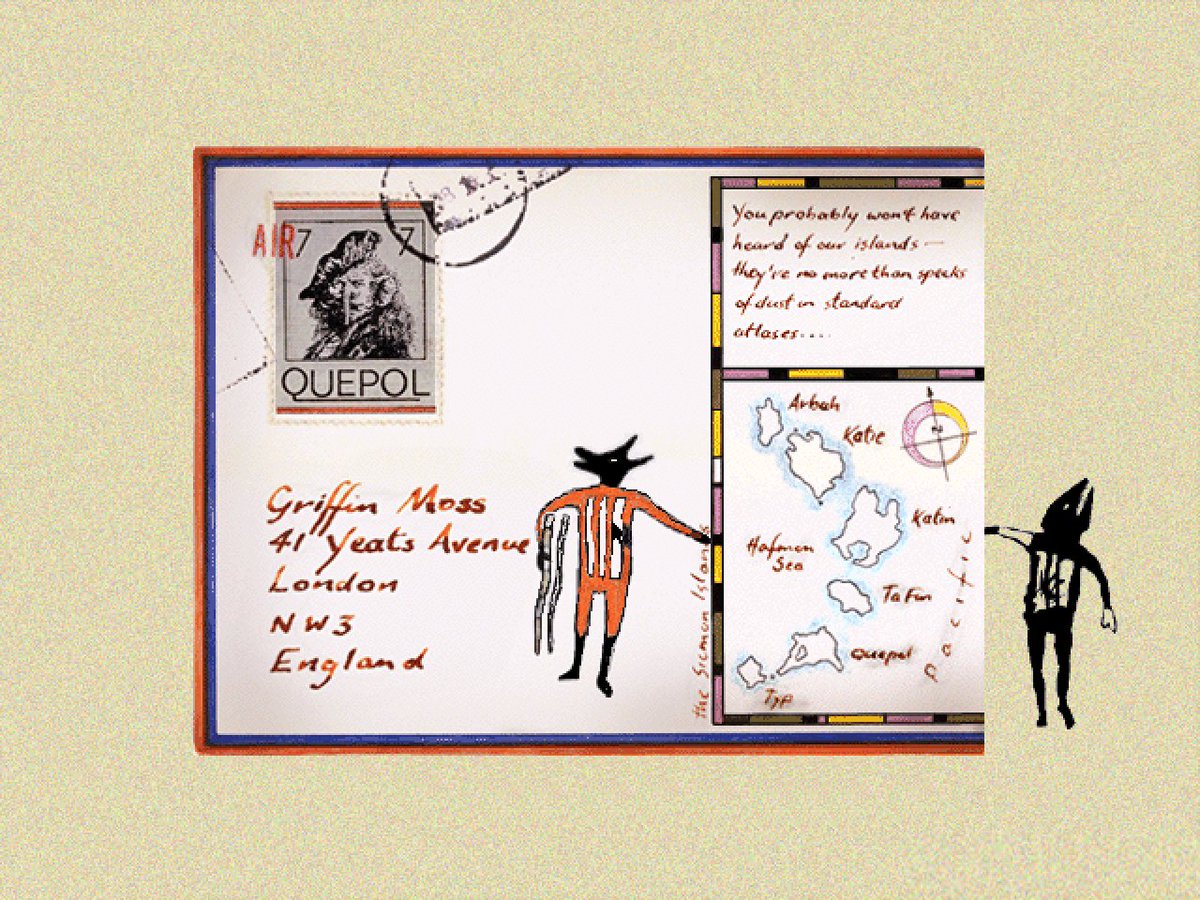 AIR
7 7
QUEPOL
Griffin Moss
41 Yeats Avenue
London
NW3
England
You probably won't have
heard of our islands —
they're no more than specks
of dust in standard
atlases....
Arbah
Katie
Katin
Hafmon
Sea
Ta Fin
Quepol
Typ
Pacific
the Sicmon Islands